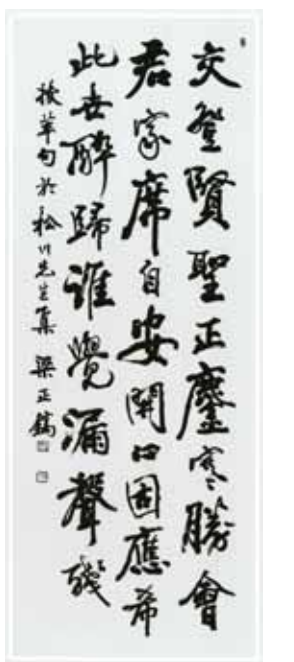 交登賢聖正鏖寒勝會
君家席自安開口固應希
此世醉歸誰覺漏聲殘
拔萃句於松川先生集 梁正鎬